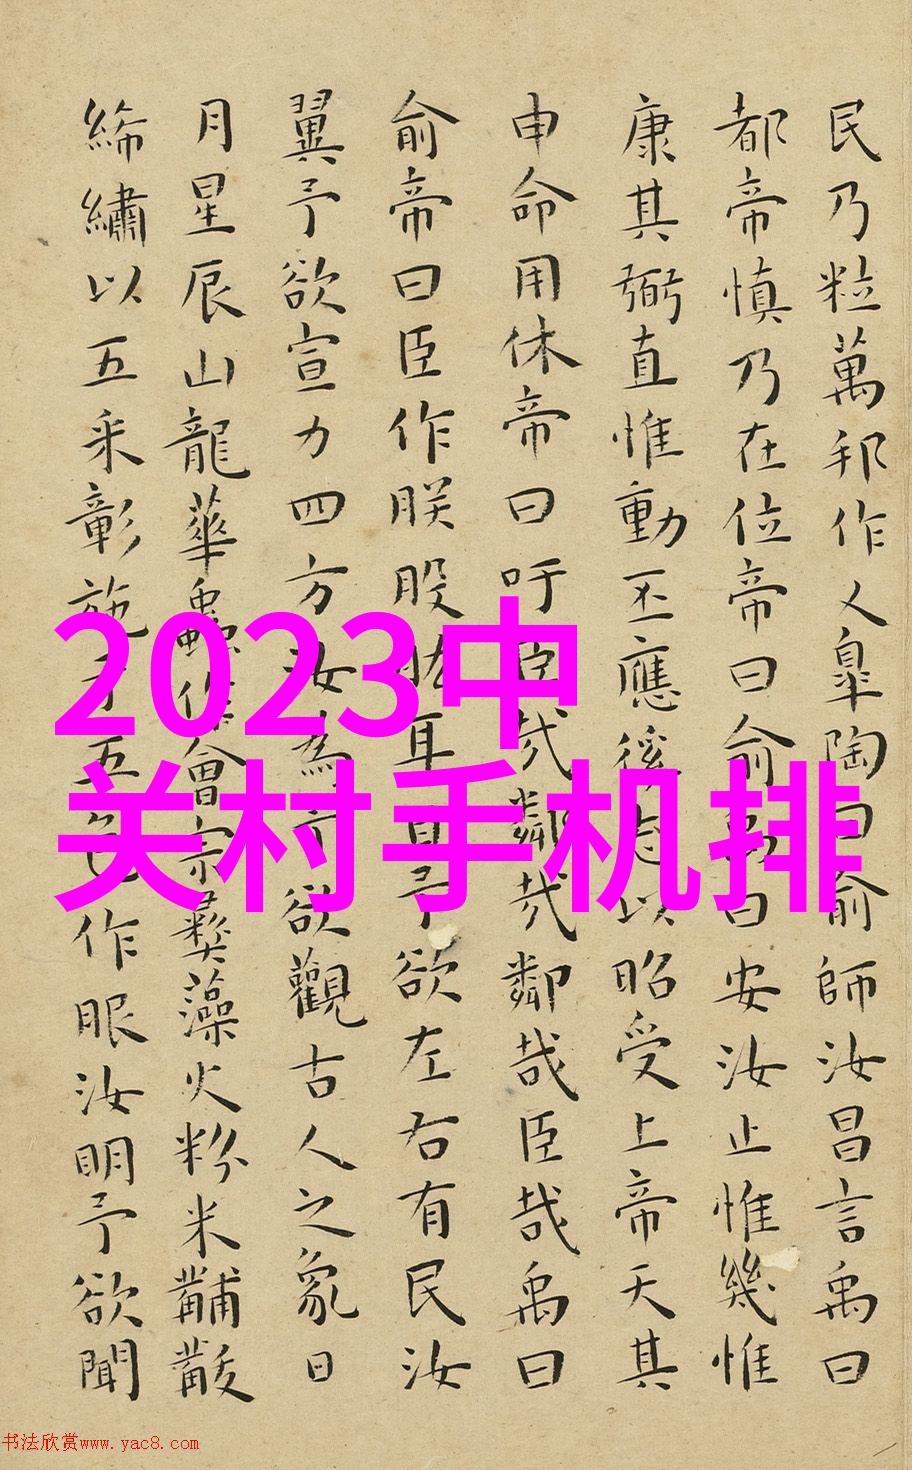 民乃粒萬邦作乂皐陶曰俞師汝昌言禹曰
都帝慎乃在位帝曰俞禹曰安汝止惟幾惟
康其弼直惟動丕應徯志以昭受上帝天其
申命用休帝曰吁臣哉鄰哉鄰哉臣哉禹曰
俞帝曰臣作朕股肱耳目予欲左右有民汝
翼予欲宣力四方汝為予欲觀古人之象日
月星辰山龍華蟲作會宗彝藻火粉米黼黻
絺繡以五采彰施于五色作服汝明予欲聞
2023中
关村手机排
书法欣赏www.yac8.com